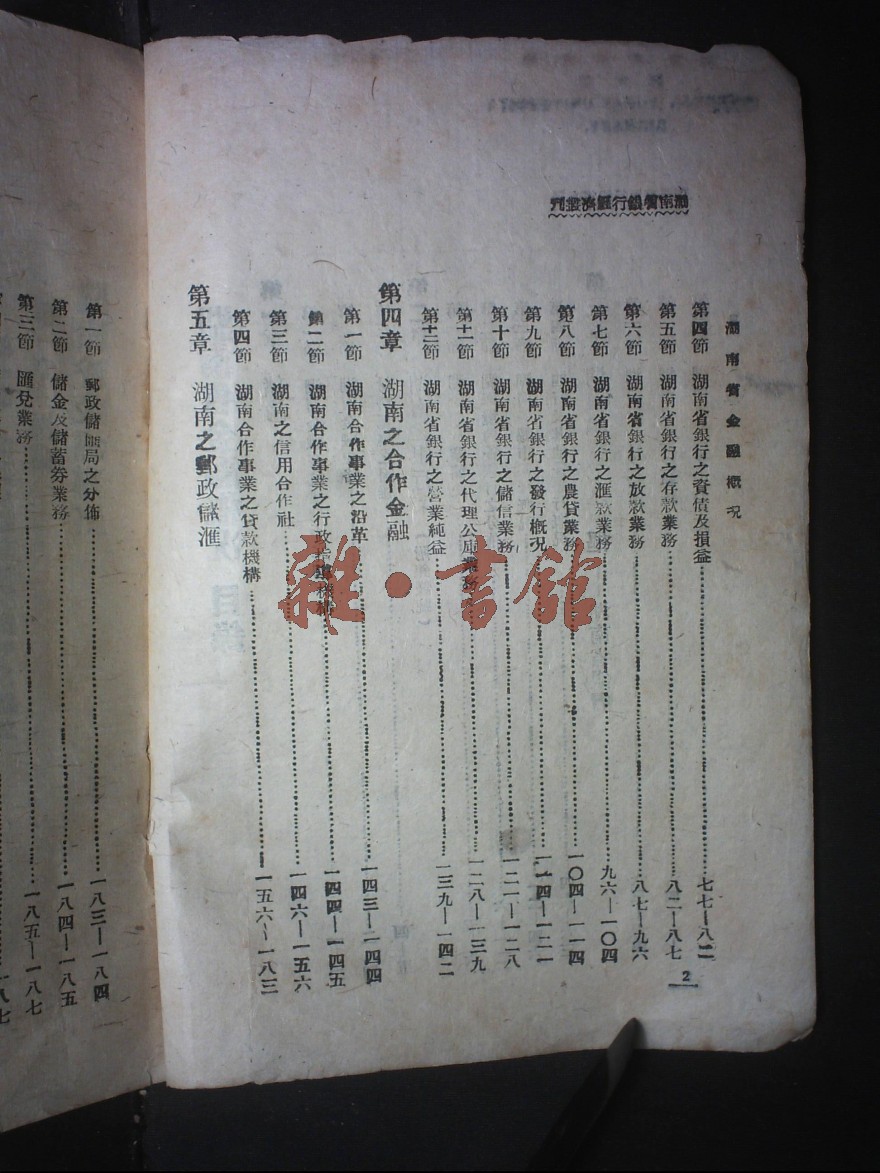 湖南省銀行經濟叢刊
湖南省金融概況
第四節 湖南省銀行之資債及損益…………七七—八二
第五節 湖南省銀行之存款業務…………八二—八七
第六節 湖南省銀行之放款業務…………八七—九六
第七節 湖南省銀行之滙款業務…………九六—一〇四
第八節 湖南省銀行之農貸業務…………一〇四—一一四
第九節 湖南省銀行之發行概況…………一一四—一二一
第十節 湖南省銀行之儲信業務…………一二一—一二八
第十一節 湖南省銀行之代理公庫業務…………一二八—一三九
第十二節 湖南省銀行之營業純益…………一三九—一四二
第四章 湖南之合作金融
第一節 湖南合作事業之沿革…………一四三—一四四
第二節 湖南合作事業之行政指導機構…………一四四—一四五
第三節 湖南之信用合作社…………一四六—一五六
第四節 湖南合作事業之貸款機構…………一五六—一八三
第五章 湖南之郵政儲滙
2
第一節 郵政儲滙局之分佈…………一八三—一八四
第二節 儲金及儲蓄券業務…………一八四—一八五
第三節 匯兌業務…………一八五—一八七
雜·書館